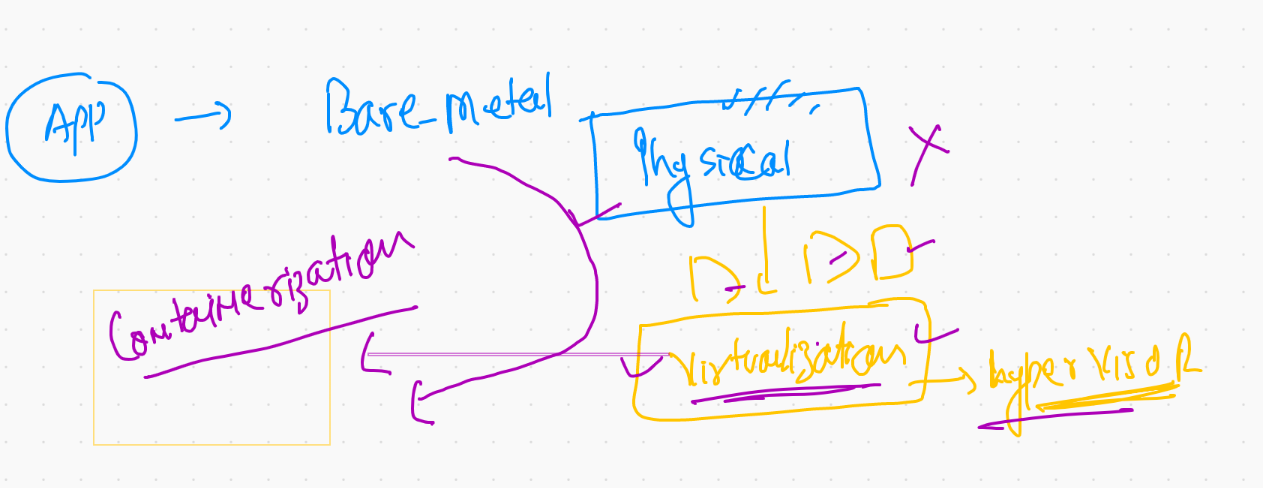 App
Bare-Metal
Physical
Containerization
Virtualization
hypervisoR